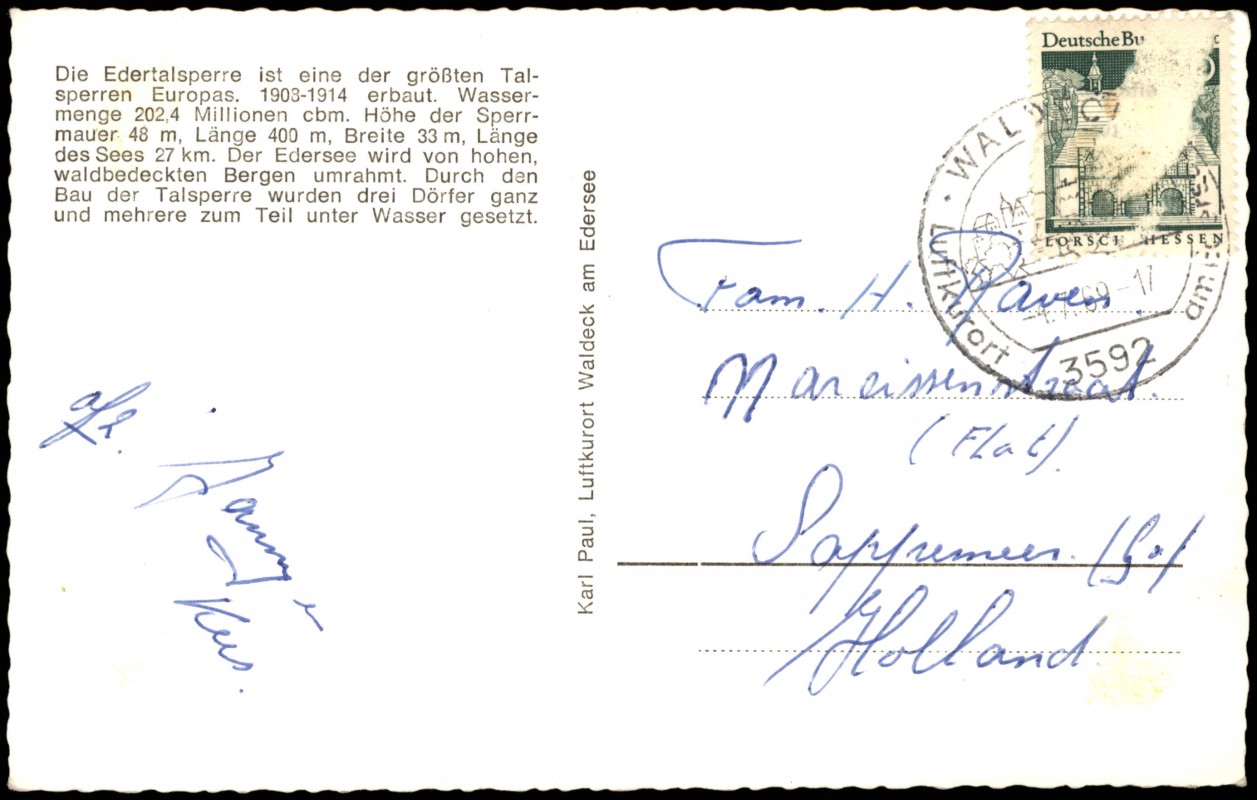 Die Edertalsperre ist eine der größten Tal-
sperren Europas. 1903-1914 erbaut. Wasser-
menge 202,4 Millionen cbm. Höhe der Sperr-
mauer 48 m, Länge 400 m, Breite 33 m, Länge
des Sees 27 km. Der Edersee wird von hohen,
waldbedeckten Bergen umrahmt. Durch den
Bau der Talsperre wurden drei Dörfer ganz
und mehrere zum Teil unter Wasser gesetzt.
afz.
Kees.
Karl Paul, Luftkurort Waldeck am Edersee
Deutsche Bu
LORSCH HESSEN
Luftkurort · WALD
am
69-17
3592
Fam. H. Raven
Narcissenstraat.
(Flat)
Sappemeer. (Gr)
Holland